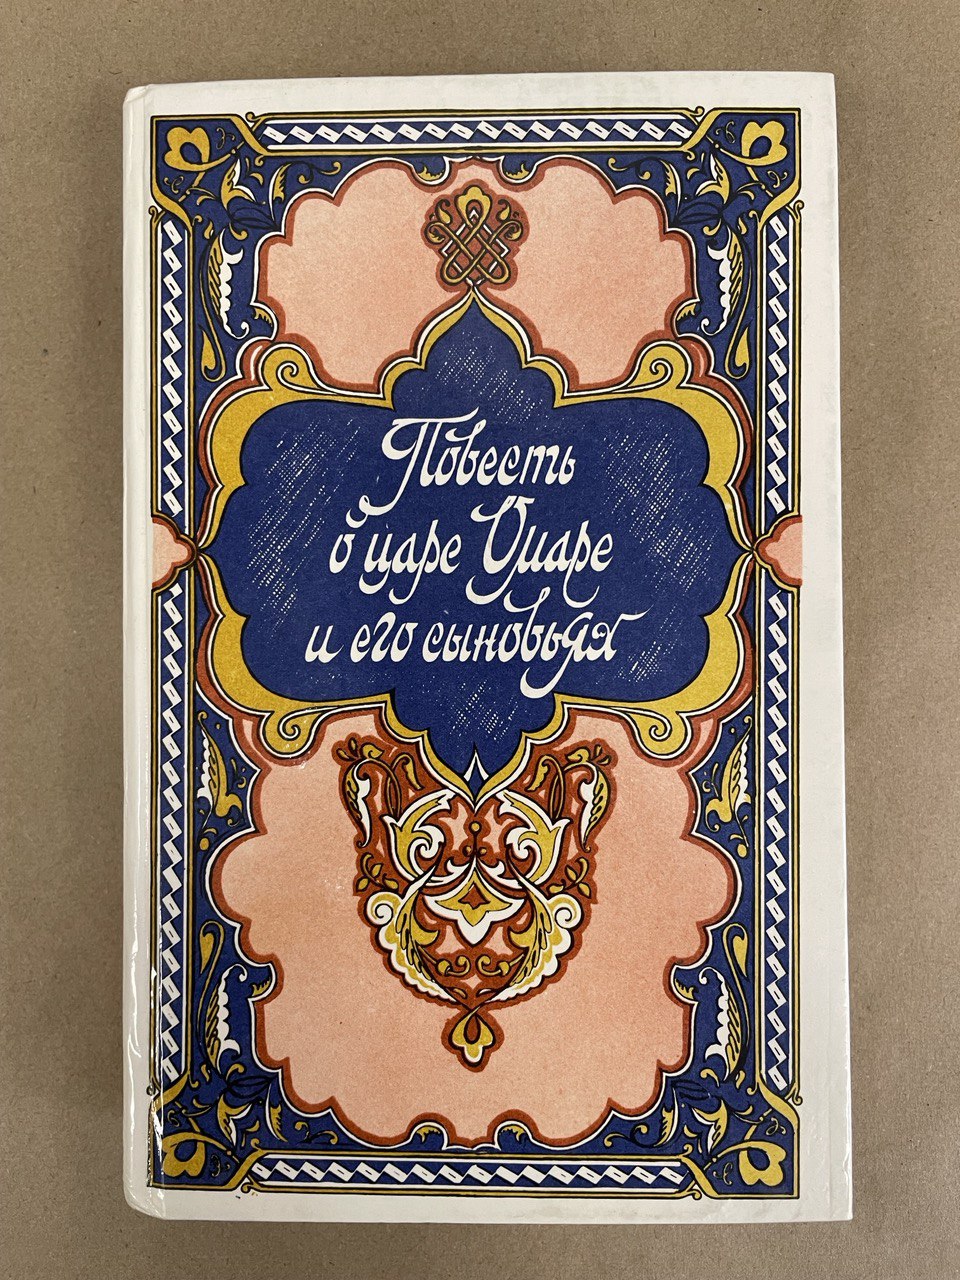 Повесть
о царе Омаре
и его сыновьях